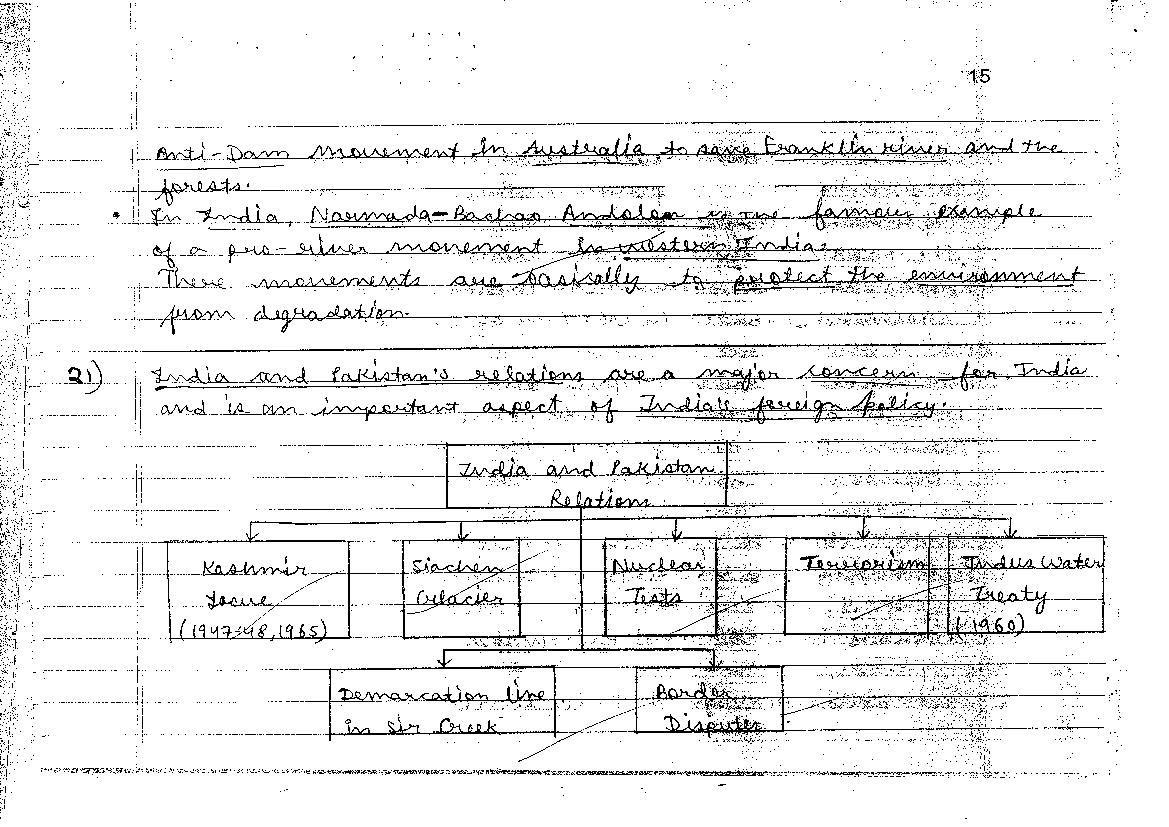 15
Anti-Dam movement in Australia to save Franklin river and the
forests.
• In India, Narmada-Bachao Andolan is the famous example
of a pro-river movement in western India.
These movements are basically to protect the environment
from degradation.
21) India and Pakistan's relations are a major concern for India
and is an important aspect of India's foreign policy.
India and Pakistan
Relations
Kashmir Siachen Nuclear Terrorism Indus Water
Issue Glacier Tests Treaty
(1947-48, 1965) (1960)
Demarcation line Border
in Sir Creek Disputes